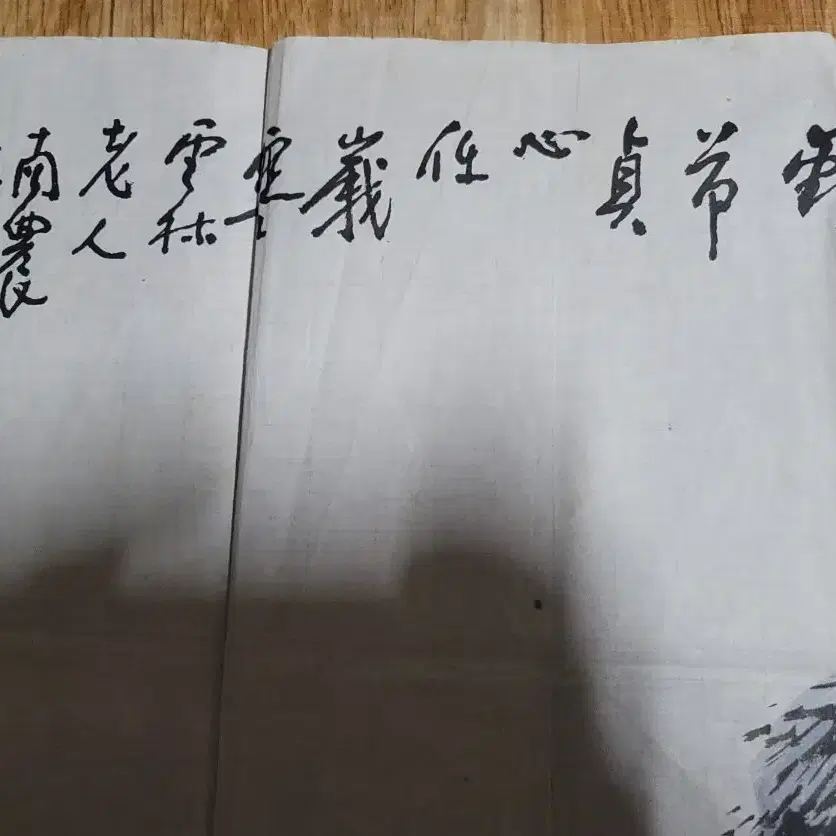 节貞心任歲寒雲林老人南農